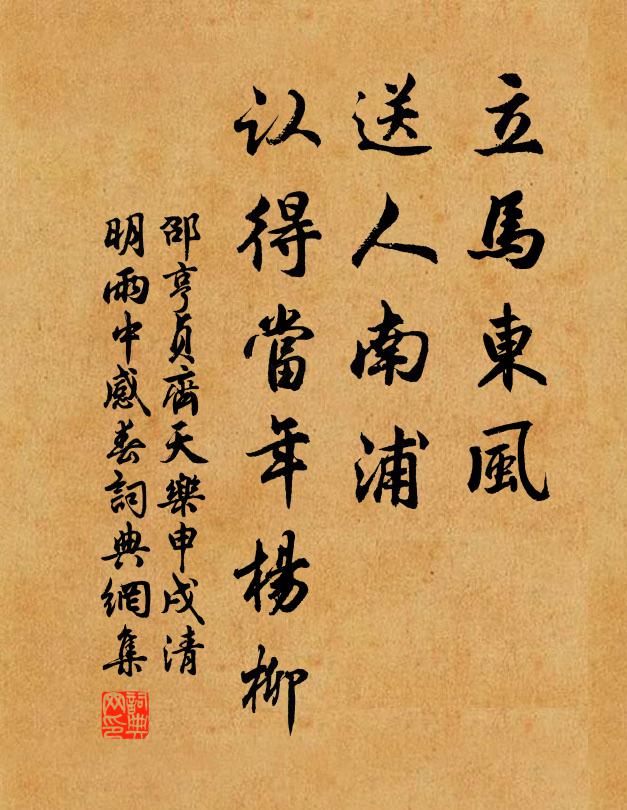 立馬東風
送人南浦
认得當年楊柳
邵亨貞齊天樂申戌清
明雨中感春詞典網集
詞典网印